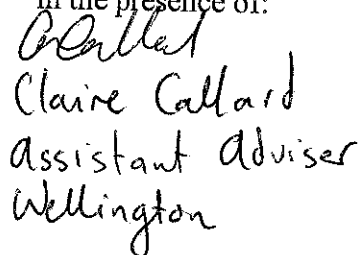 in the presence of:
Claire Callard
Assistant Adviser
Wellington